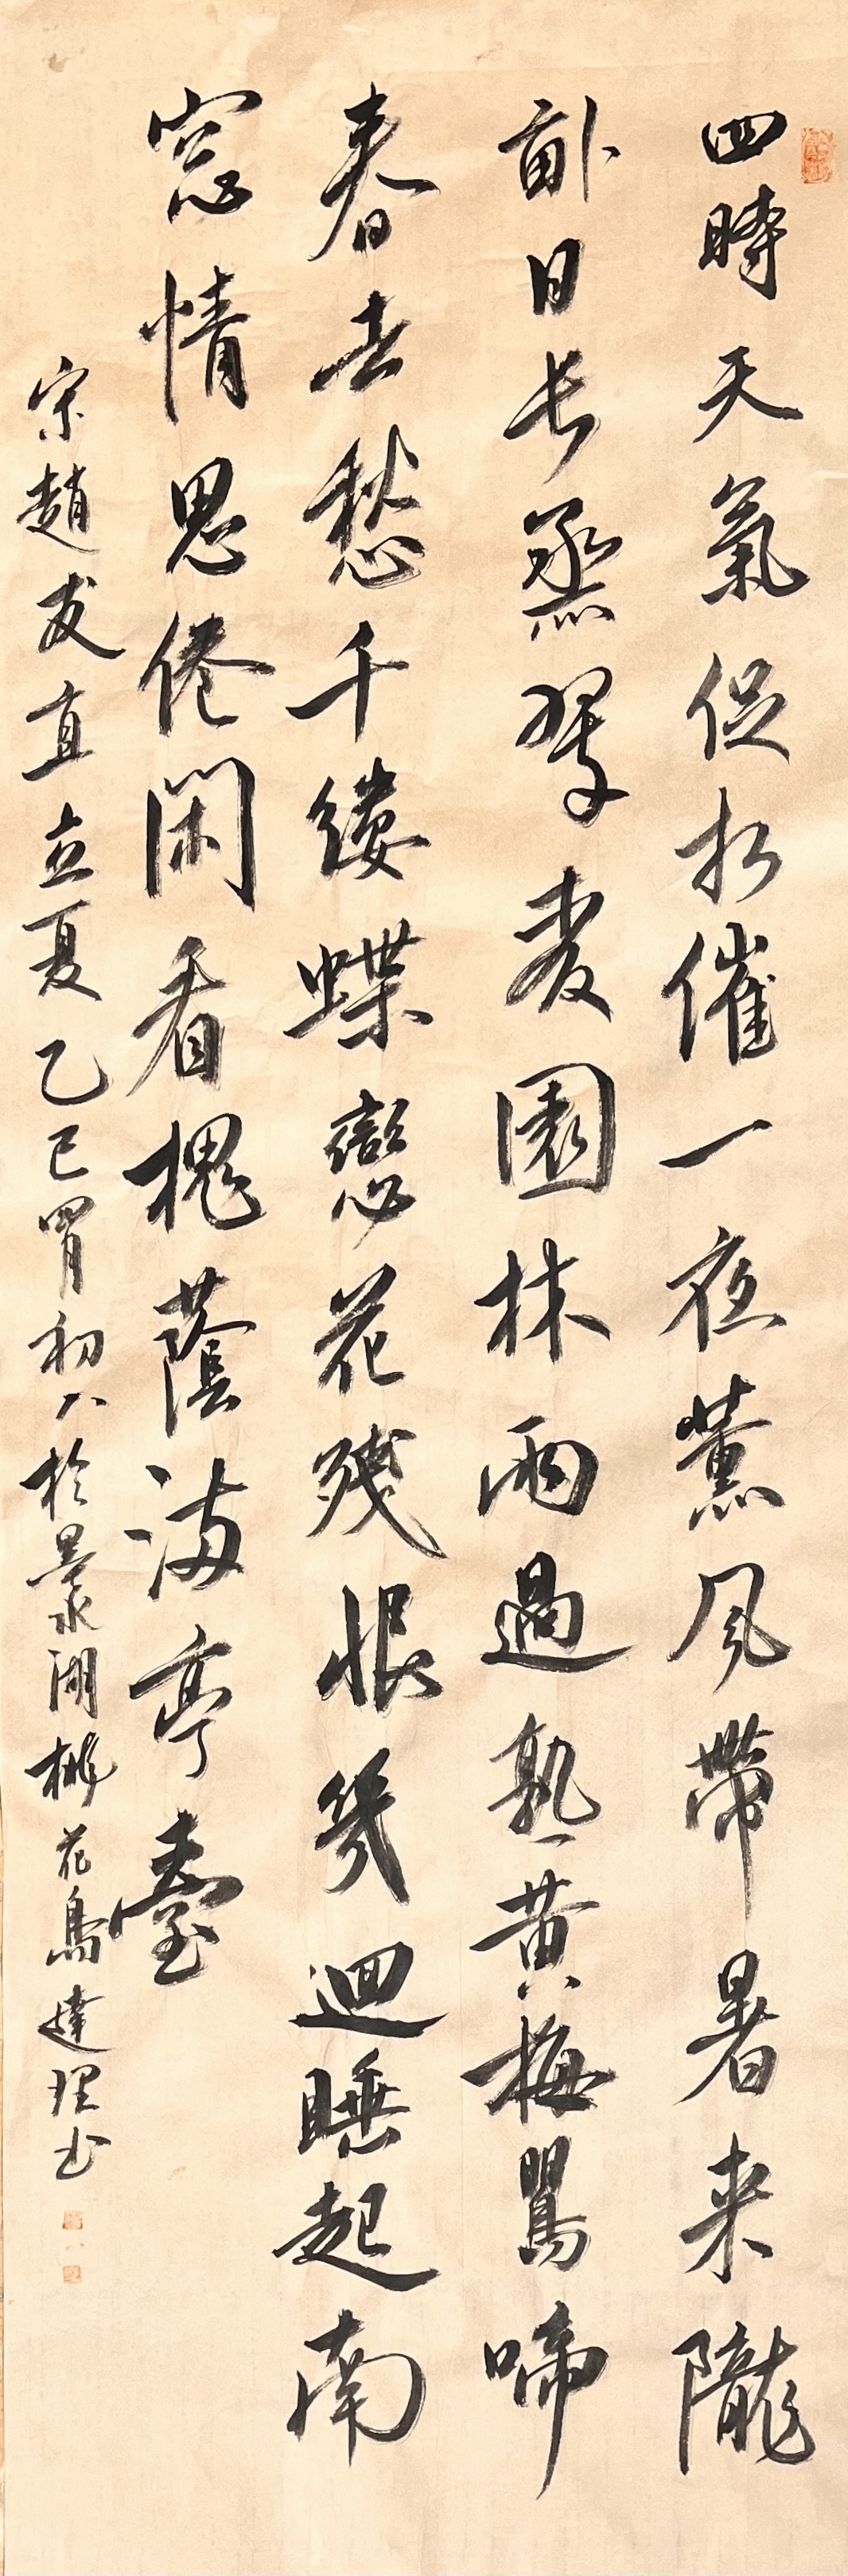 四時天氣促相催一夜薰風帶暑来隴
畝日長蒸翠麦園林雨過熟黄梅鶯啼
春去愁千縷蝶戀花殘恨幾迴睡起南
窓情思倦閑看槐蔭滿亭臺
宋趙友直立夏乙巳胃初八於景湖桃花島達理书